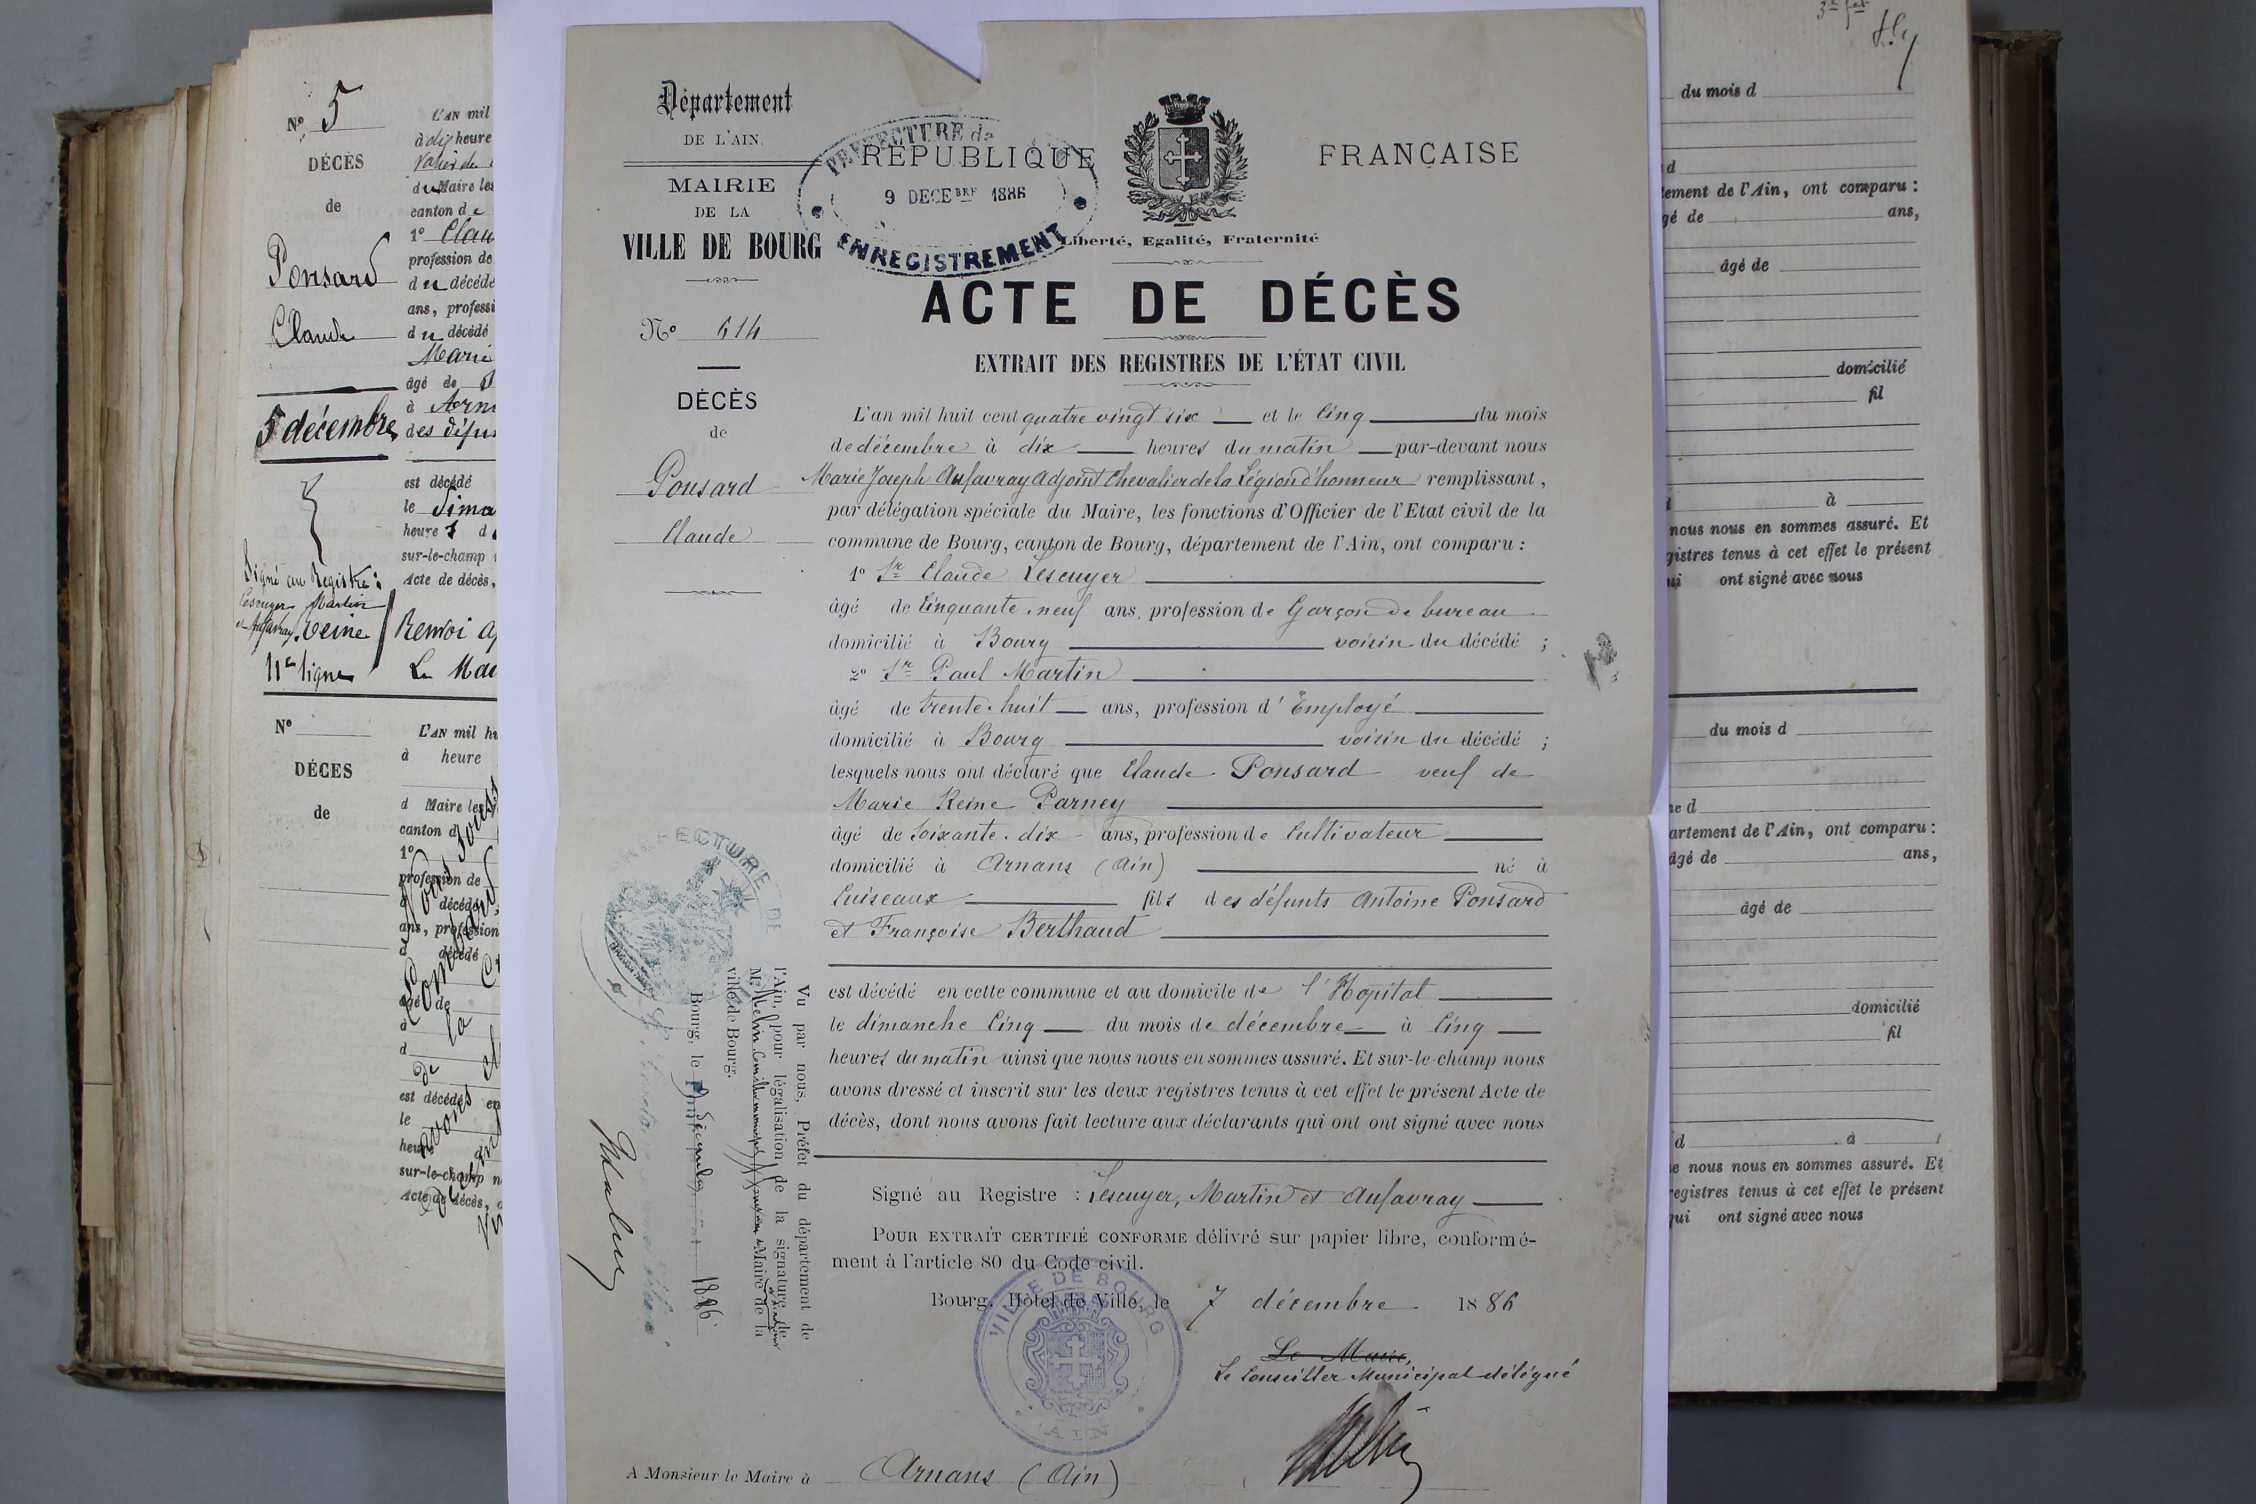 Nº 5
DÉCÈS
de
Ponsard
Claude
5 décembre
Signé au Registre :
Lescuyer Martin
et Aufavray
Reine
11e ligne
L'AN mil
à dix heure
du Maire les
canton de
1º Clau
profession de
du décédé
ans, professi
du décédé
Marie
âgé de
à Arn
des défun
est décédé
le Dima
heures d
sur-le-champ
Acte de décès,
Le Mai
Nº
DÉCES
de
L'AN mil hu
à heure
d Maire les
canton d
1º
profession de
d décédé
ans, profession
d décédé
âgé de
à
d
est décédé en
le
heure d
sur-le-champ n
Acte de décès,
Département
DE L'AIN.
MAIRIE
DE LA
VILLE DE BOURG
Nº 614
DÉCÈS
de
Ponsard
Claude
PREFECTURE de
9 DECEBRE 1886
ENREGISTREMENT
RÉPUBLIQUE FRANÇAISE
Liberté, Egalité, Fraternité
ACTE DE DÉCÈS
EXTRAIT DES REGISTRES DE L'ÉTAT CIVIL
L'an mil huit cent quatre vingt six et le Cinq du mois
de décembre à dix heures du matin par-devant nous
Marie Joseph Aufavray Adjoint Chevalier de la Légion d'honneur remplissant,
par délégation spéciale du Maire, les fonctions d'Officier de l'Etat civil de la
commune de Bourg, canton de Bourg, département de l'Ain, ont comparu :
1º Sr Claude Lescuyer
âgé de Cinquante neuf ans, profession de Garçon de bureau
domicilié à Bourg voisin du décédé ;
2º Sr Paul Martin
âgé de trente-huit ans, profession d'Employé
domicilié à Bourg voisin du décédé ;
lesquels nous ont déclaré que Claude Ponsard veuf de
Marie Reine Parney
âgé de Soixante-dix ans, profession de Cultivateur
domicilié à Arnans (Ain) né à
Cuiseaux fils des défunts Antoine Ponsard
et Françoise Berthaud
est décédé en cette commune et au domicile de l'Hopital
le dimanche Cinq du mois de décembre à Cinq
heures du matin ainsi que nous nous en sommes assuré. Et sur-le-champ nous
avons dressé et inscrit sur les deux registres tenus à cet effet le présent Acte de
décès, dont nous avons fait lecture aux déclarants qui ont ont signé avec nous
Signé au Registre : Lescuyer, Martin et Aufavray
POUR EXTRAIT CERTIFIÉ CONFORME délivré sur papier libre, conformé-
ment à l'article 80 du Code civil.
Bourg, Hôtel de Ville, le 7 décembre 1886
Le Maire,
Le Conseiller Municipal délégué
VILLE DE BOURG
(AIN)
A Monsieur le Maire à Arnans (Ain)
PREFECTURE DE
Vu par nous, Préfet du département de
l'Ain, pour légalisation de la signature de
Mr Maire de la
ville de Bourg.
Bourg, le 1886
du mois d
d
ement de l'Ain, ont comparu :
gé de ans,
âgé de
domicilié
fil
à
nous nous en sommes assuré. Et
gistres tenus à cet effet le présent
ui ont signé avec nous
du mois d
ne d
artement de l'Ain, ont comparu :
âgé de ans,
âgé de
domicilié
fil
d à
e nous nous en sommes assuré. Et
registres tenus à cet effet le présent
qui ont signé avec nous